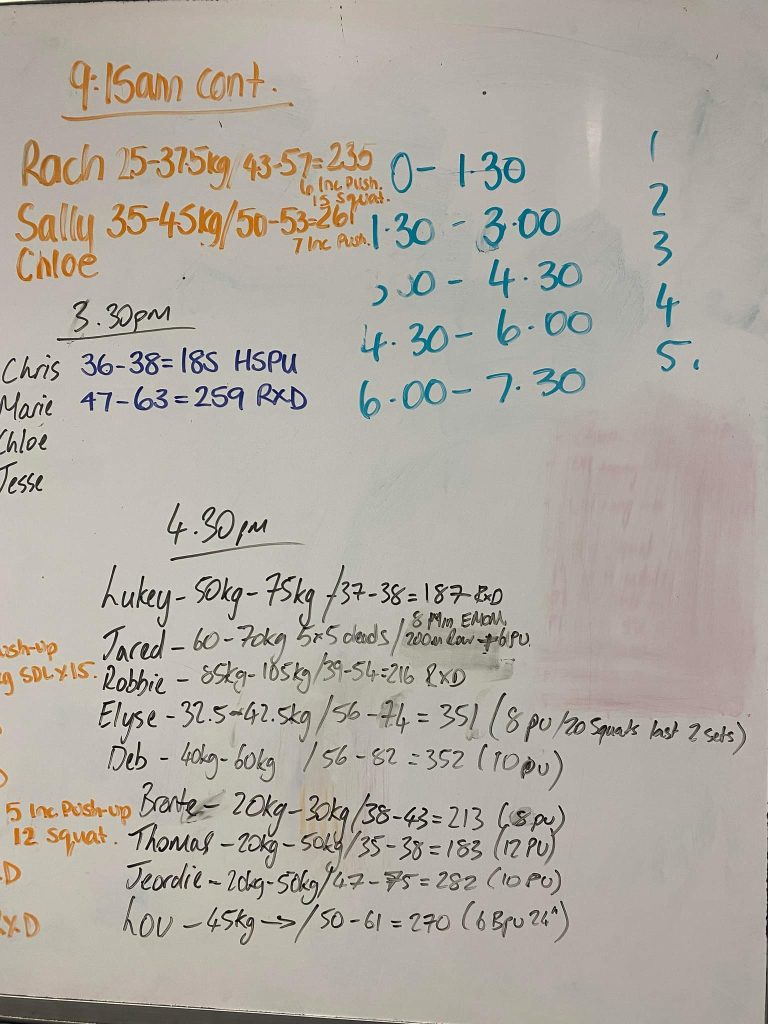 9:15am cont.
Rach 25-37.5kg/43-57=235
6 Inc Push.
15 Squat.
Sally 35-45kg/50-53=261
7 Inc Push.
Chloe
0 - 1.30
1.30 - 3.00
- 4.30
4.30 - 6.00
6.00 - 7.30
1
2
3
4
5.
3.30pm
Chris 36-38=185 HSPU
Marie 47-63=259 RXD
Chloe
Jesse
4.30pm
Lukey - 50kg - 75kg /37-38=187 RxD
Jared - 60-70kg 5x5 deads / 8 Min EMOM
200m Row 6PU.
Robbie - 85kg-105kg/39-54=216 RXD
Elyse - 32.5-42.5kg/56-74=351 (8pu/20 Squats last 2 sets)
Deb - 40kg-60kg /56-82=352 (10pu)
Bronte - 20kg-30kg/38-43=213 (8pu)
Thomas - 20kg-50kg/35-38=183 (12PU)
Jeordie - 20kg-50kg/47-75=282 (10PU)
Lou - 45kg → /50-61=270 (6Bpu 24")
ush-up
g SDL x 15.
5 Inc Push-up
12 Squat.
D
XD